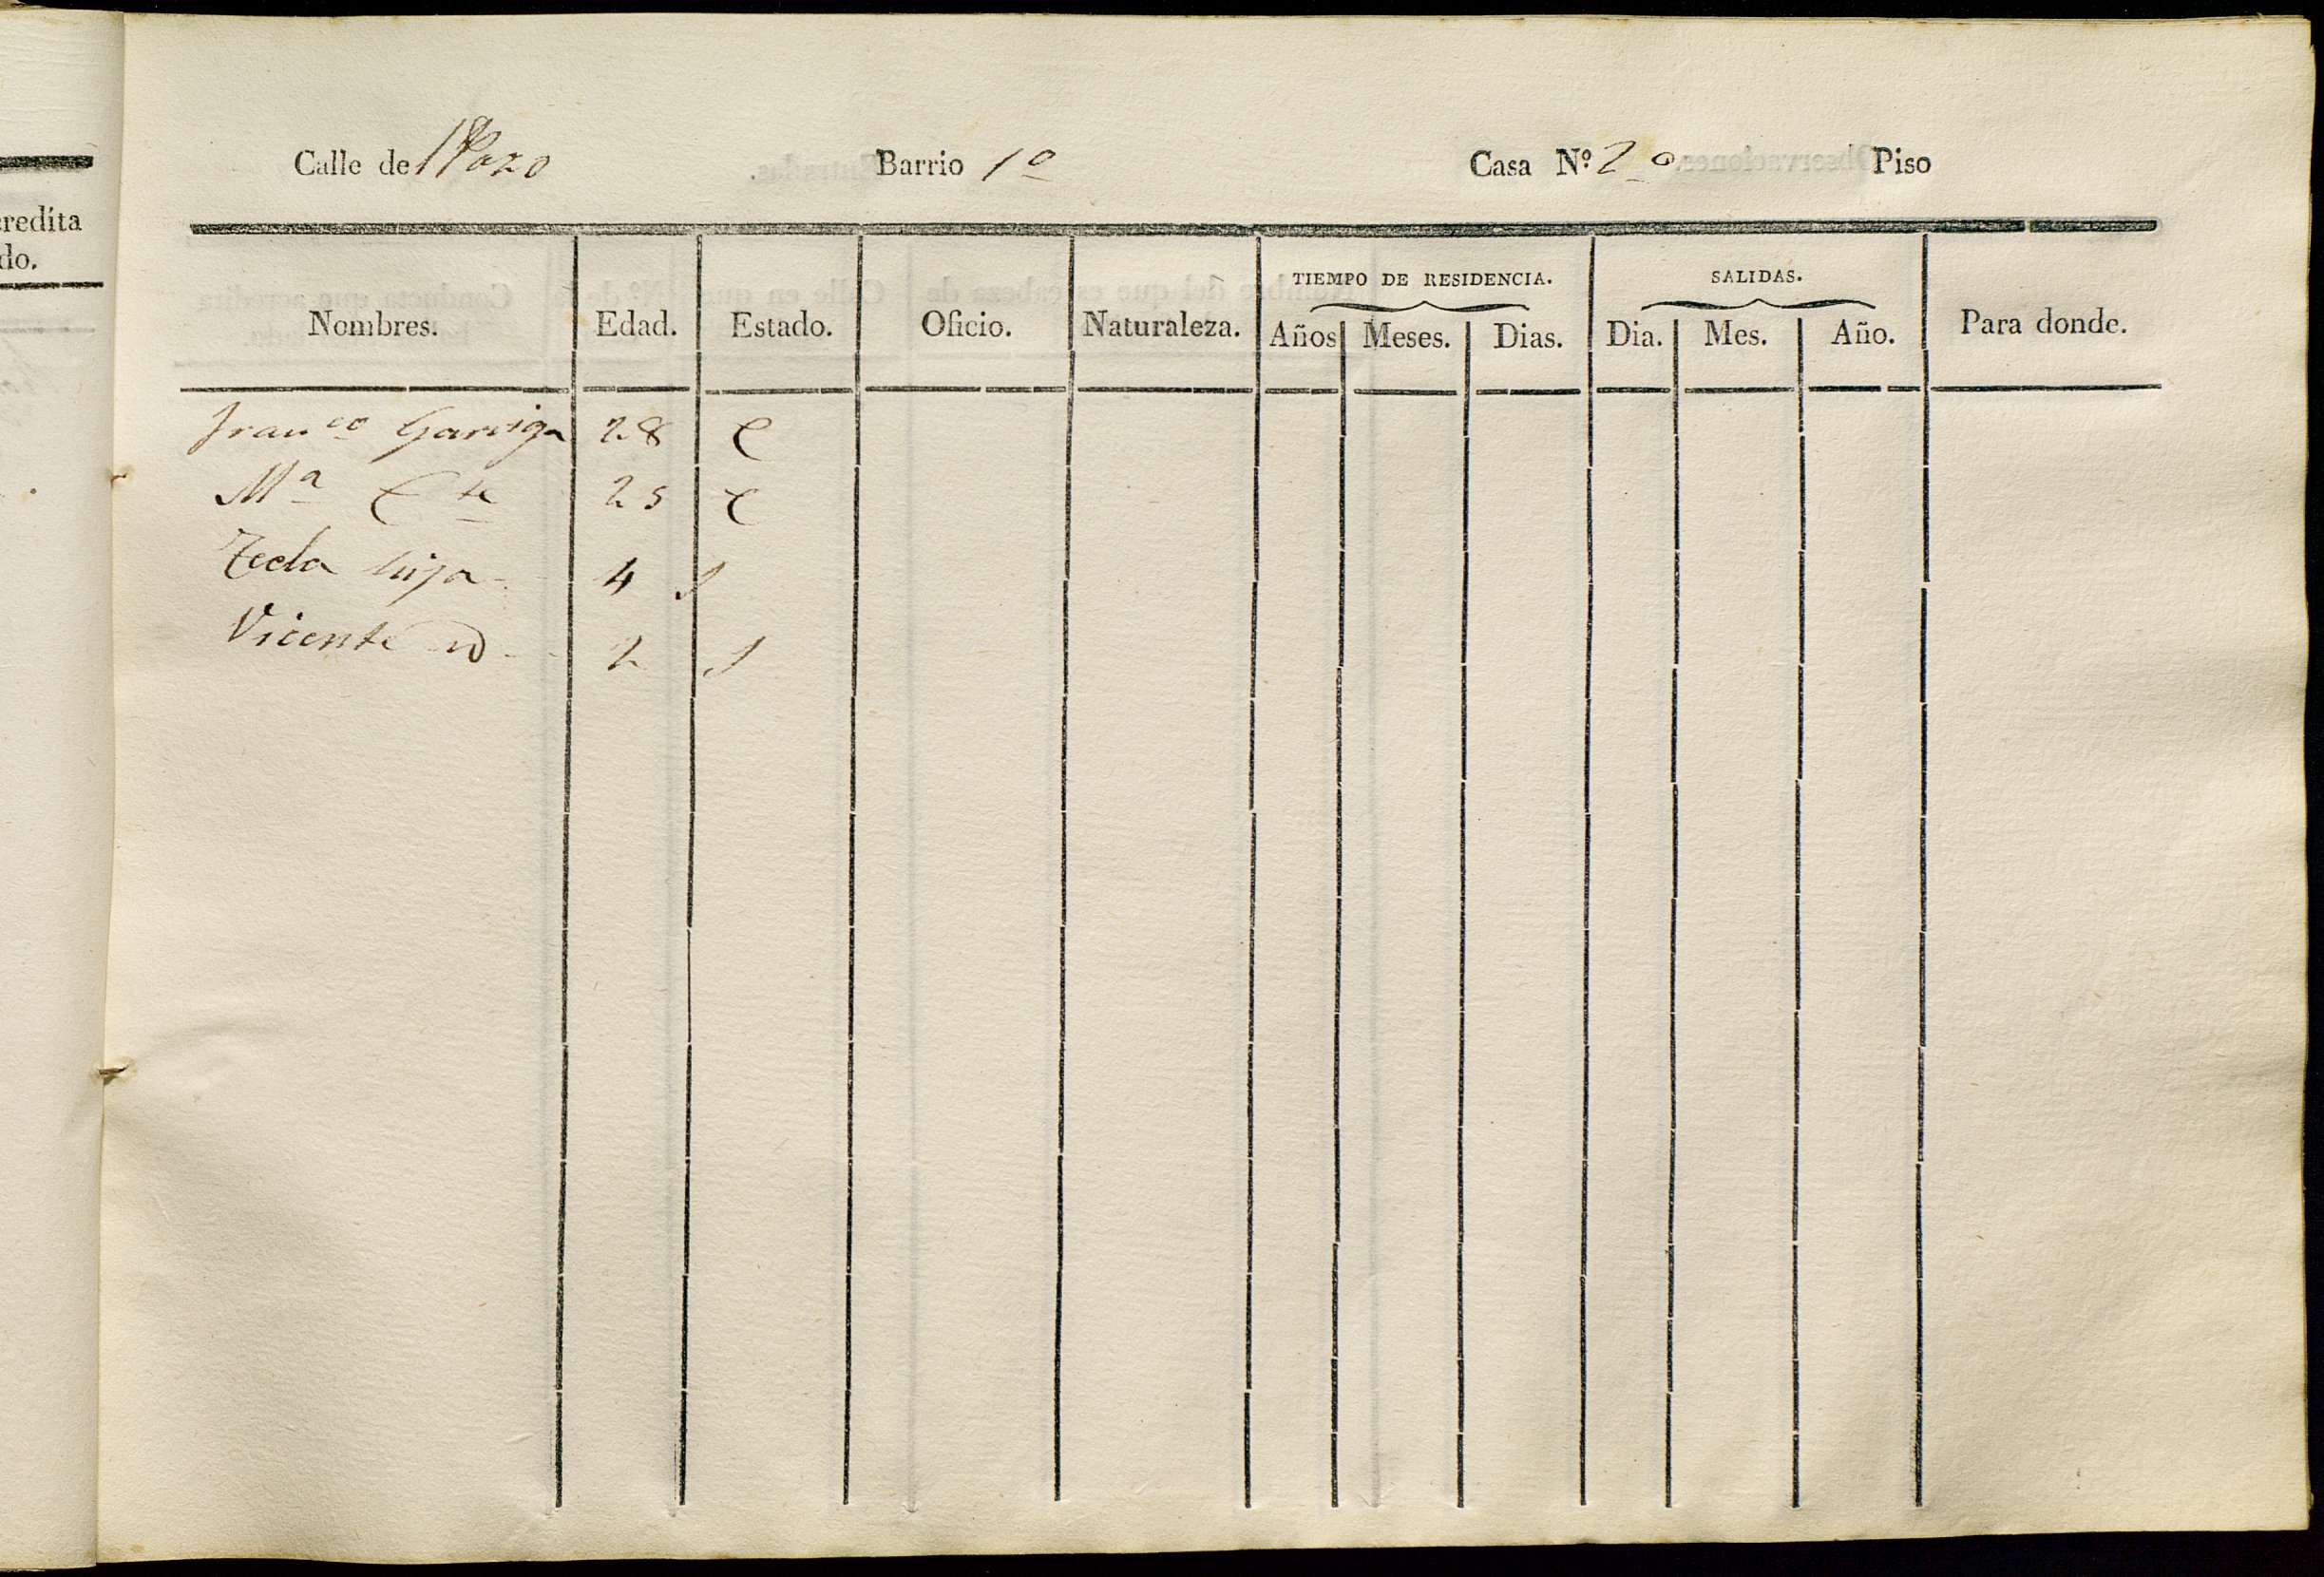 Calle del Pozo Barrio 1º Casa Nº 2º Piso
credita
do.
TIEMPO DE RESIDENCIA. SALIDAS.
Nombres. Edad. Estado. Oficio. Naturaleza. Años Meses. Dias. Dia. Mes. Año. Para donde.
Franco Garriga 28 C
Mª 25 C
Tecla hija 4 S
Vicente id 2 S